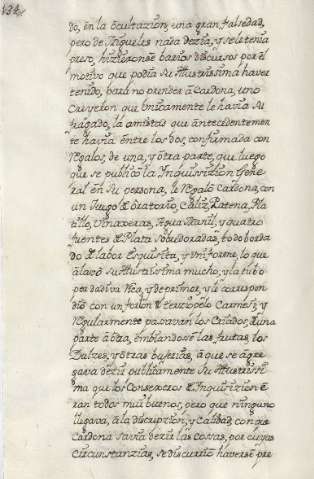 134
do, en la ocultazion, una gran falsedad,
pero de Miguelis nada dezia, y se le tenia
preso, hizieronse barios discursos por el
motivo que podia Su Illustrissima haver
tenido, para no prender à Cardona, uno
creyeron que unicamente le havia Su
fragado, la amistad que antecedentemen
te havia entre los dos, confirmada con
Regalos, de una, y otra parte, que luego
que se publicò la Inquisizion Gene
ral en Su persona, le Regalò Cardona, con
un Juego de Oratorio, Caliz, Patena, Pla
tillo, Vinaxeras, Agua Manil, y quatro
fuentes de Plata Sobredoradas, todo borda
do de labor Exquisita, y uniforme, lo que
alavò su Illustrissima mucho, y la tubo
por dadiva Rica, y de primor, y le correspon
diò con un de terziopelo Carmesi, y
Regularmente passavan los Criados, de una
parte à otra, embiandose las frutas, los
Dulzes, y otras buxerias, à que se agre
gava dezir publicamente Su Illustrissi
ma que los Consegeros de Inquisizion e
ran todos muy buenos, pero que ninguno
llegava, à la discrecion, y Calidad, con que
Cardona savia dezir las cossas, por cuyas
circunstanzias, se discurriò haverse pre